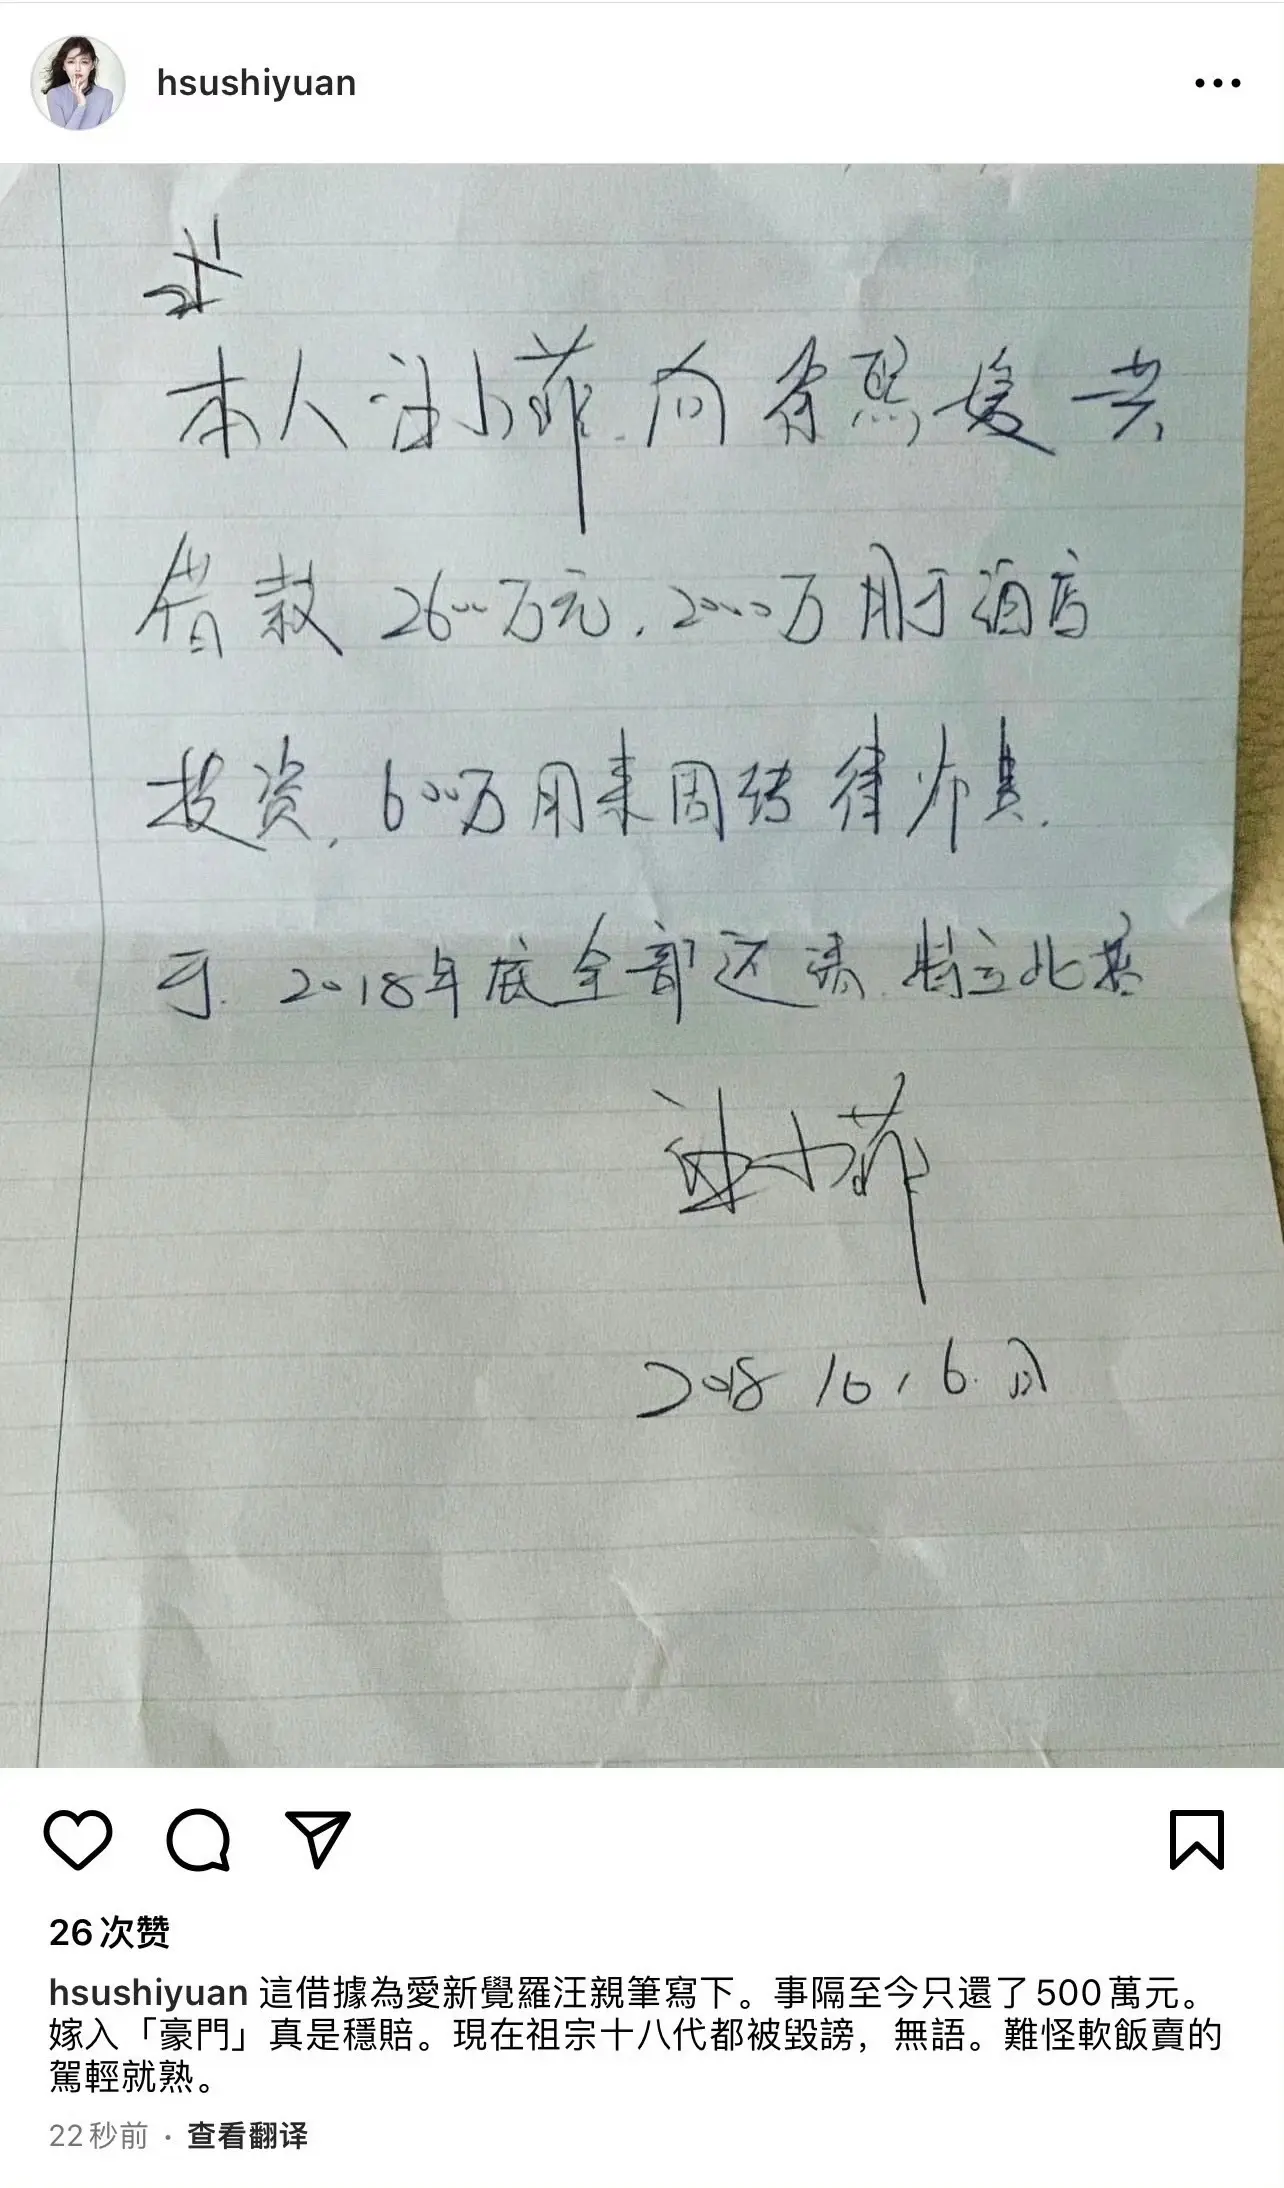 hsushiyuan
本人汪小菲.向徐熙媛共
借款2600万元,2000万用于酒店
投资,600万用来周转律师费.
于.2018年底全部还清.特立此据
汪小菲
2018 10,6.日
26次赞
hsushiyuan 這借據為愛新覺羅汪親筆寫下。事隔至今只還了500萬元。
嫁入「豪門」真是穩賠。現在祖宗十八代都被毀謗，無語。難怪軟飯賣的
駕輕就熟。
22秒前 · 查看翻译